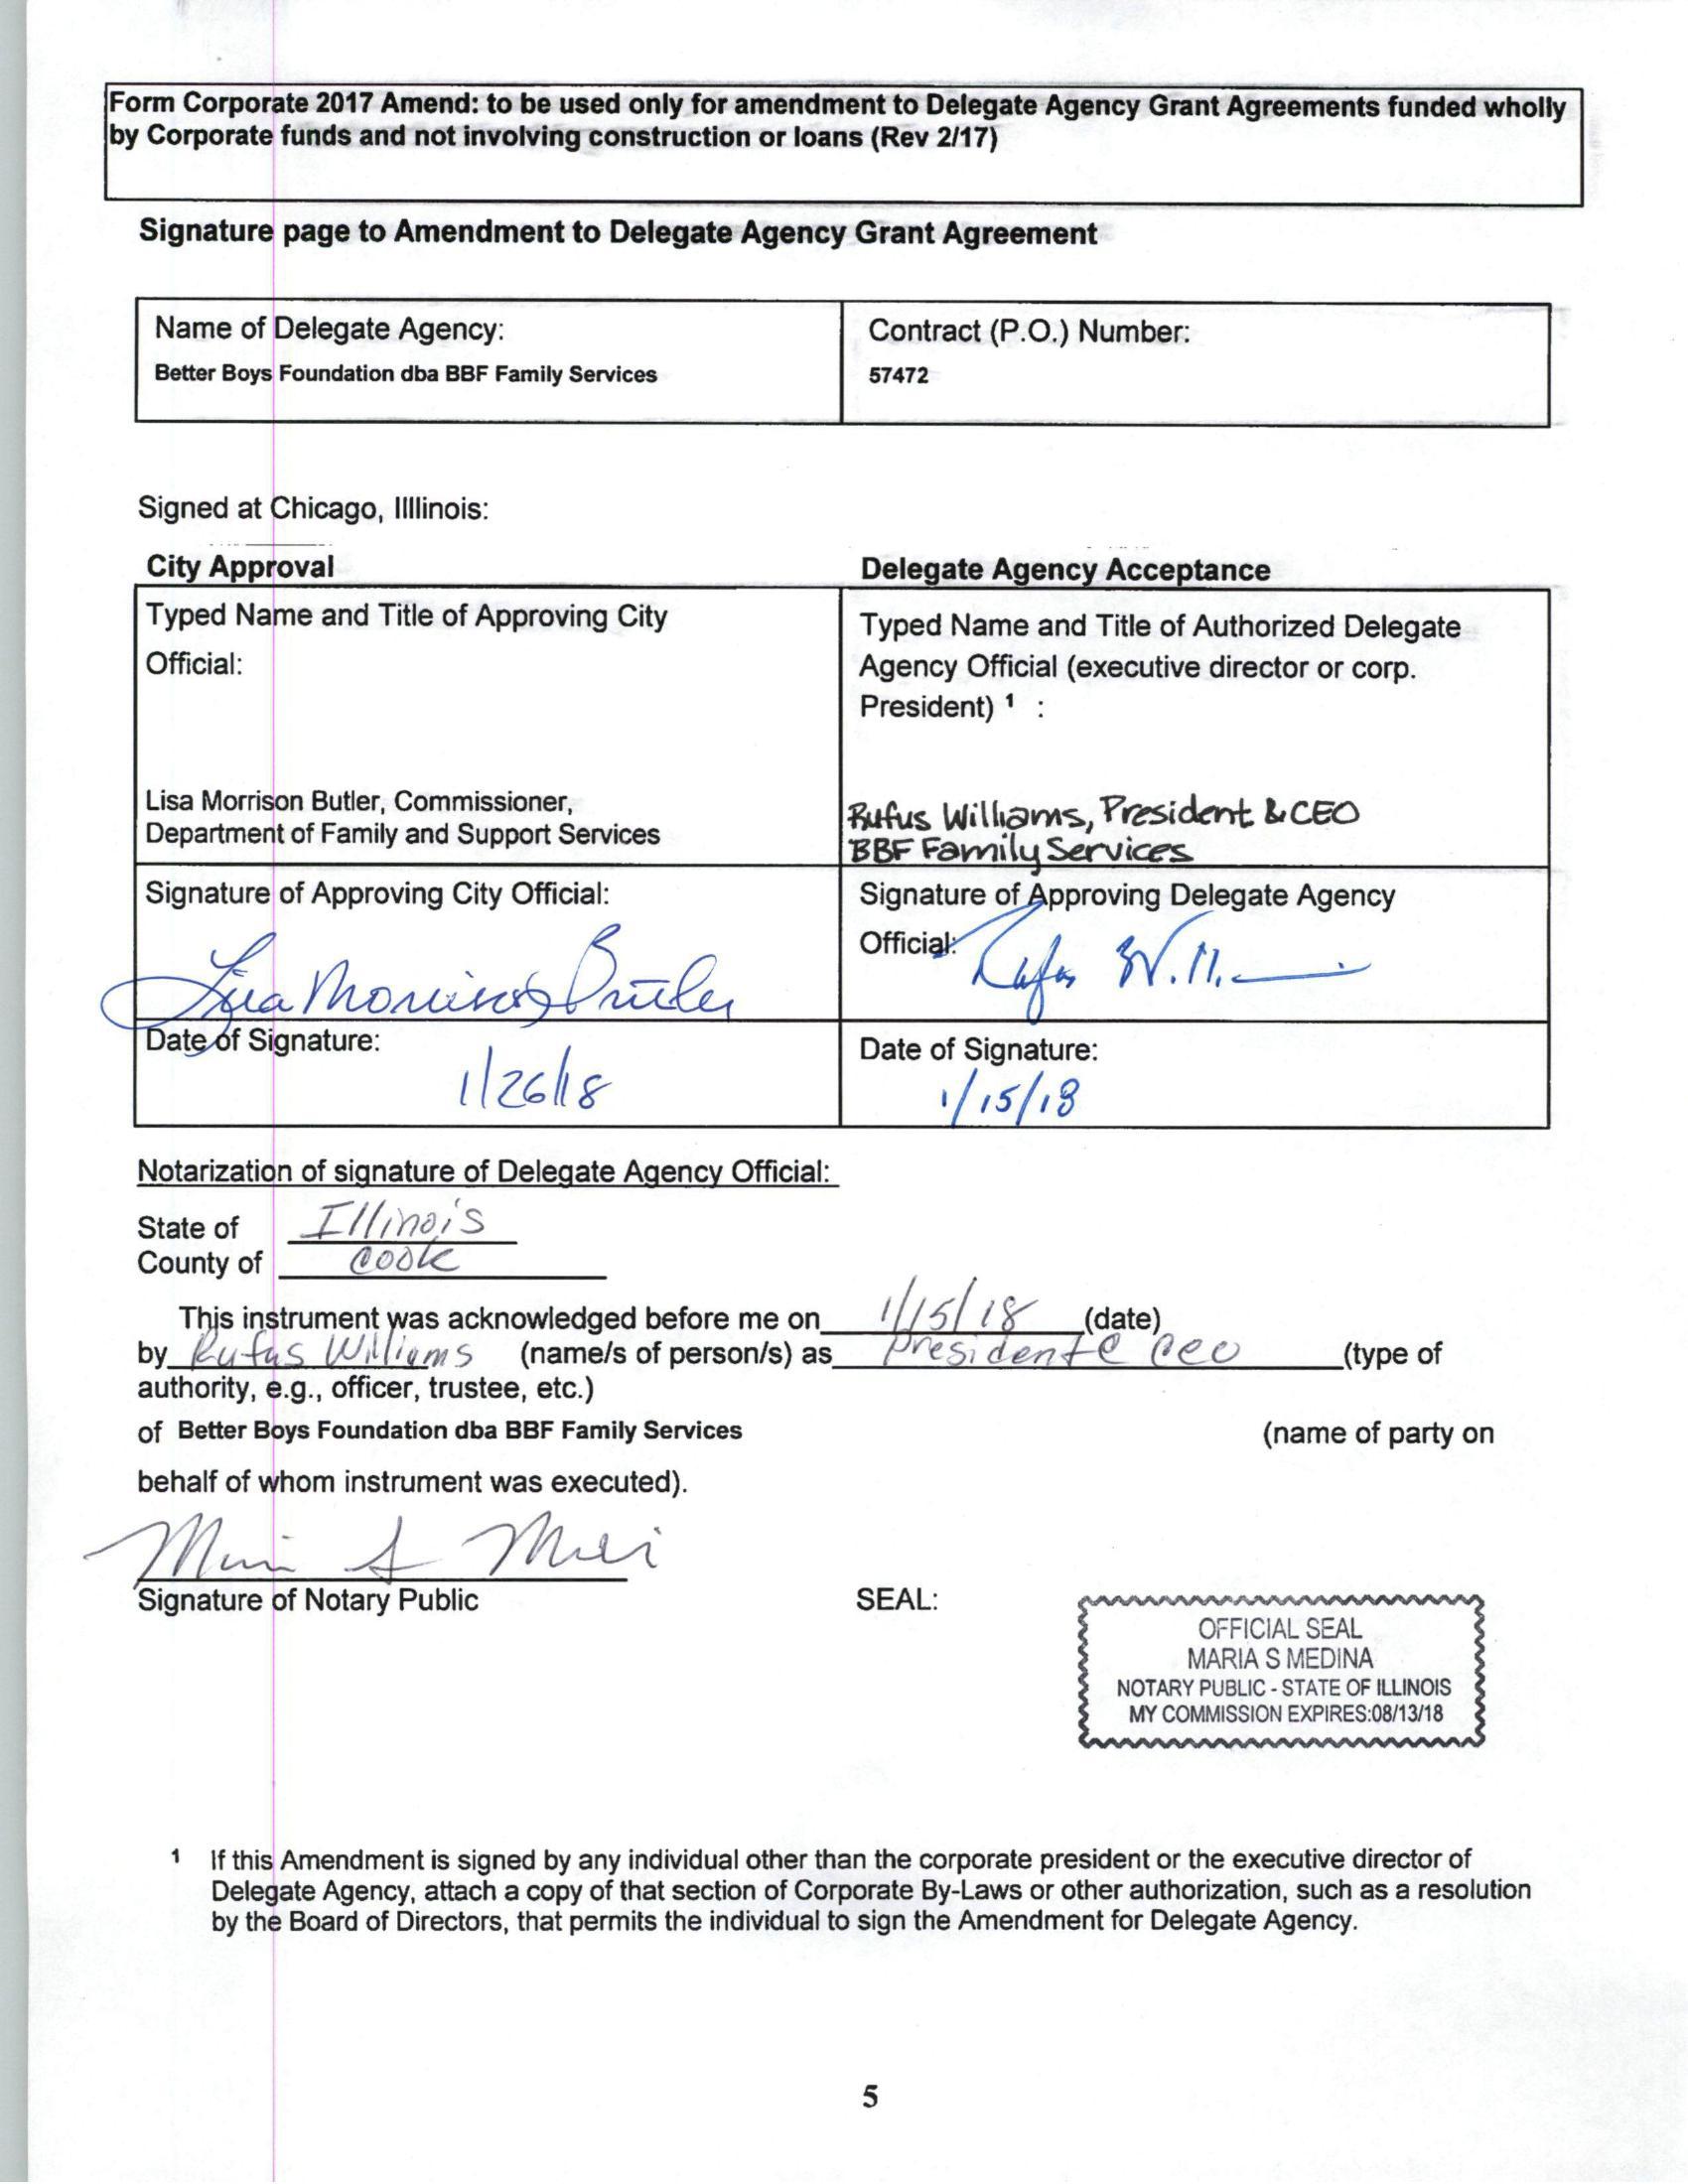 Form Corporate 2017 Amend: to be used only for amendment to Delegate Agency Grant Agreements funded wholly
by Corporate funds and not involving construction or loans (Rev 2/17)
Signature page to Amendment to Delegate Agency Grant Agreement
Name of Delegate Agency:
Better Boys Foundation dba BBF Family Services
Contract (P.O.) Number:
57472
Signed at Chicago, Illlinois:
City Approval
Typed Name and Title of Approving City
Official:
Lisa Morrison Butler, Commissioner,
Department of Family and Support Services
Signature of Approving City Official:
Lisa Morrison Butler
Date of Signature:
1/26/18
Delegate Agency Acceptance
Typed Name and Title of Authorized Delegate
Agency Official (executive director or corp.
President) 1 :
Rufus Williams, President & CEO
BBF Family Services
Signature of Approving Delegate Agency
Official:
Date of Signature:
1/15/18
Notarization of signature of Delegate Agency Official:
State of Illinois
County of Cook
This instrument was acknowledged before me on 1/15/18 (date)
by Rufus Williams (name/s of person/s) as President & CEO (type of
authority, e.g., officer, trustee, etc.)
of Better Boys Foundation dba BBF Family Services (name of party on
behalf of whom instrument was executed).
Signature of Notary Public
SEAL:
OFFICIAL SEAL
MARIA S MEDINA
NOTARY PUBLIC - STATE OF ILLINOIS
MY COMMISSION EXPIRES:08/13/18
1 If this Amendment is signed by any individual other than the corporate president or the executive director of
Delegate Agency, attach a copy of that section of Corporate By-Laws or other authorization, such as a resolution
by the Board of Directors, that permits the individual to sign the Amendment for Delegate Agency.
5